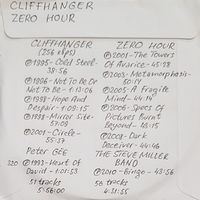 CLIFFHANGER
ZERO HOUR
CLIFFHANGER
(256 kbps)
1995-Cold Steel-
38:56
1996-Not To Be Or
Not To Be - 1:13:06
1998-Hope And
Despair-1:09:15
1998-Mirror Site-
57:09
2001-Circle-
55:37
Peter GEE
320
1993-Heart Of
David-1:01:53
51 tracks
5:56:00
ZERO HOUR
2001-The Towers
Of Avarice-45:28
2003-Metamorphosis-
2005-A Fragile
Mind-44:14
2006-Specs Of
Pictures Burnt
Beyond-48:15
2008-Dark
Deceiver-44:46
THE STEVE MILLER
BAND
2010-Bingo-43:56
56 tracks
4:31:55